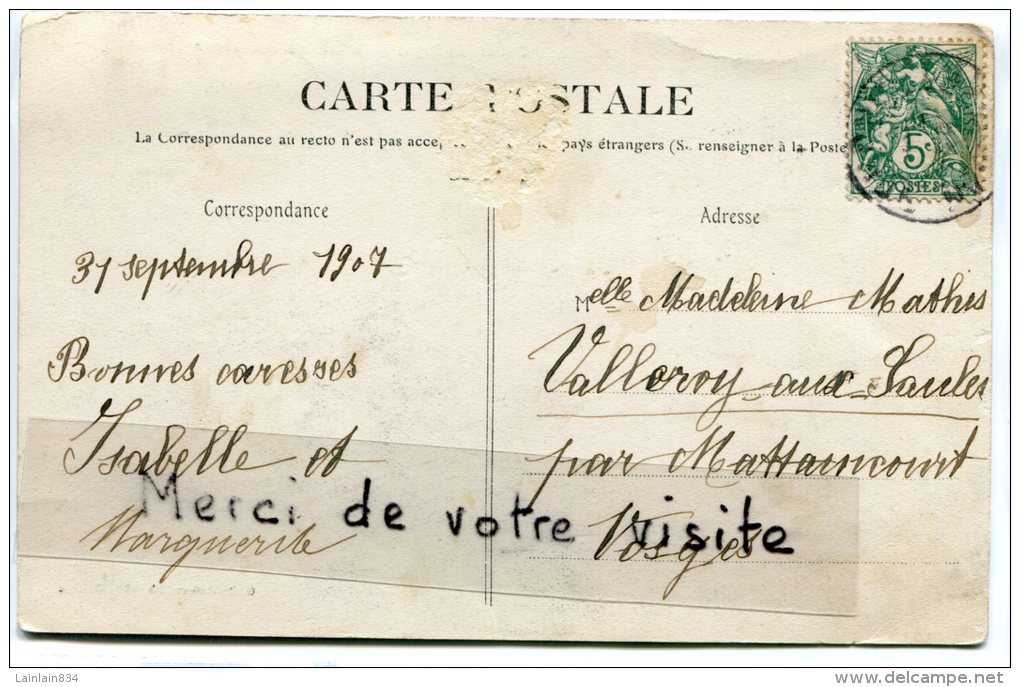 CARTE POSTALE
La Correspondance au recto n'est pas accep pays étrangers (Se renseigner à la Poste
Correspondance
31 septembre 1907
Bonnes caresses
Isabelle et
Marguerite
Adresse
Melle Madeleine Mathis
Valleroy-aux-Saules
par Mattaincourt
Vosges
5c
POSTES
Merci de votre visite
Lainlain834
delcampe.net